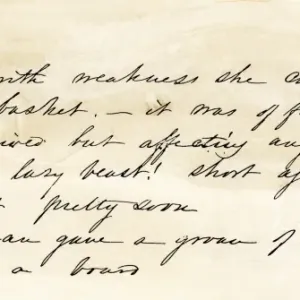 with weakness she
basket. — it was of
but affecting an
lazy beast! short
pretty soon
gave a groan of
a board